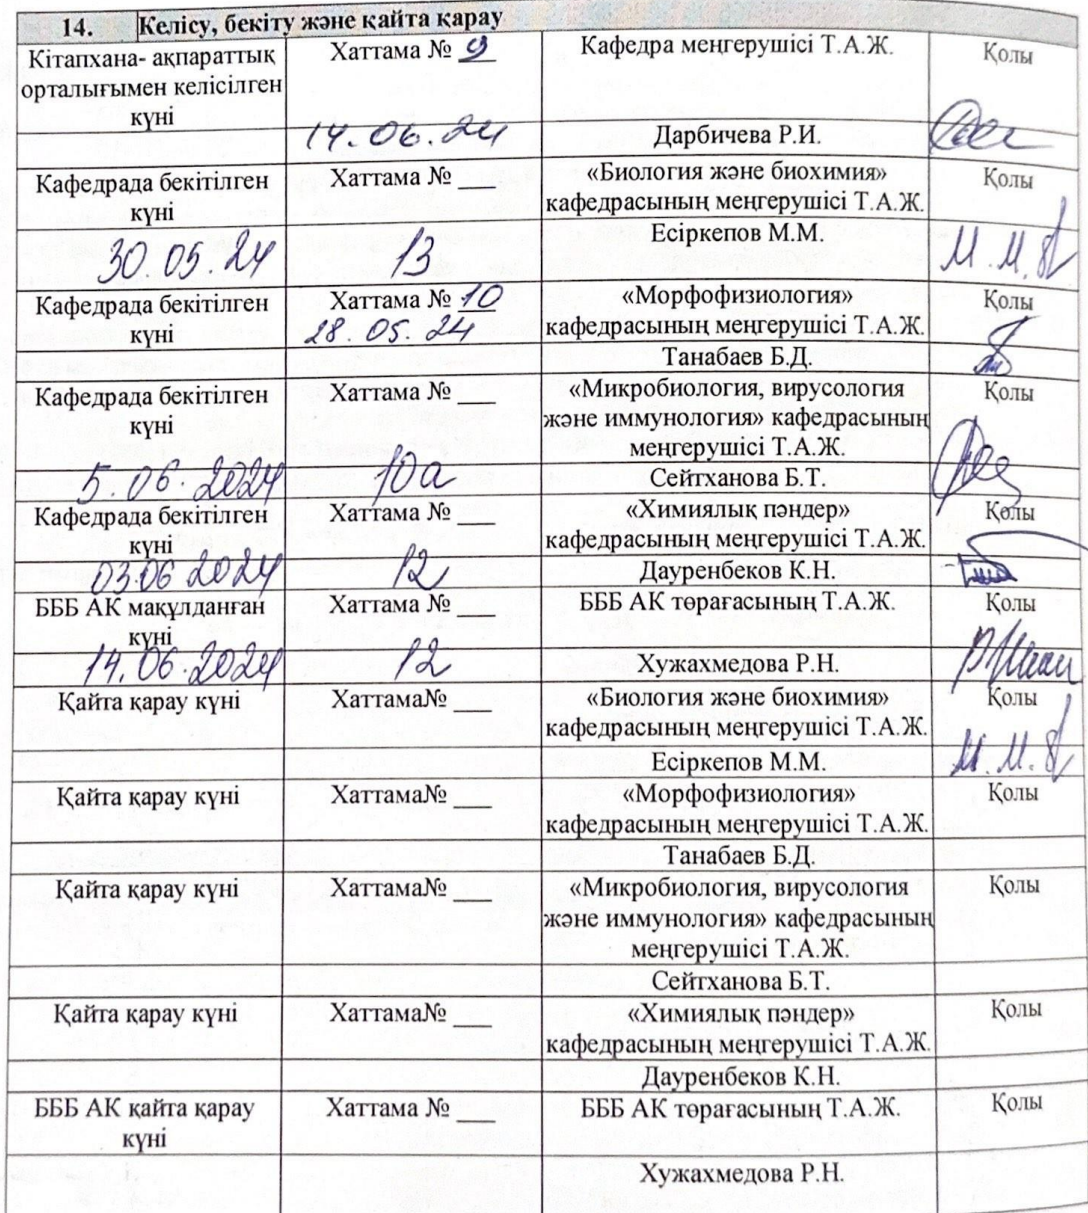 14. Келісу, бекіту және қайта қарау
Кітапхана- ақпараттық
орталығымен келісілген
күні
Хаттама № 9
14.06.24
Кафедра меңгерушісі Т.А.Ж.
Дарбичева Р.И.
Қолы
Кафедрада бекітілген
күні
30.05.24
Хаттама № ___
13
«Биология және биохимия»
кафедрасының меңгерушісі Т.А.Ж.
Есіркепов М.М.
Қолы
Кафедрада бекітілген
күні
Хаттама № 10
28.05.24
«Морфофизиология»
кафедрасының меңгерушісі Т.А.Ж.
Танабаев Б.Д.
Қолы
Кафедрада бекітілген
күні
5.06.2024
Хаттама № ___
10а
«Микробиология, вирусология
және иммунология» кафедрасының
меңгерушісі Т.А.Ж.
Сейтханова Б.Т.
Қолы
Кафедрада бекітілген
күні
03.06 2024
Хаттама № ___
12
«Химиялық пәндер»
кафедрасының меңгерушісі Т.А.Ж.
Дауренбеков К.Н.
Қолы
БББ АК мақұлданған
күні
14.06.2024
Хаттама № ___
12
БББ АК төрағасының Т.А.Ж.
Хужахмедова Р.Н.
Қолы
Қайта қарау күні
Хаттама№ ___
«Биология және биохимия»
кафедрасының меңгерушісі Т.А.Ж.
Есіркепов М.М.
Қолы
Қайта қарау күні
Хаттама№ ___
«Морфофизиология»
кафедрасының меңгерушісі Т.А.Ж.
Танабаев Б.Д.
Қолы
Қайта қарау күні
Хаттама№ ___
«Микробиология, вирусология
және иммунология» кафедрасының
меңгерушісі Т.А.Ж.
Сейтханова Б.Т.
Қолы
Қайта қарау күні
Хаттама№ ___
«Химиялық пәндер»
кафедрасының меңгерушісі Т.А.Ж.
Дауренбеков К.Н.
Қолы
БББ АК қайта қарау
күні
Хаттама № ___
БББ АК төрағасының Т.А.Ж.
Хужахмедова Р.Н.
Қолы